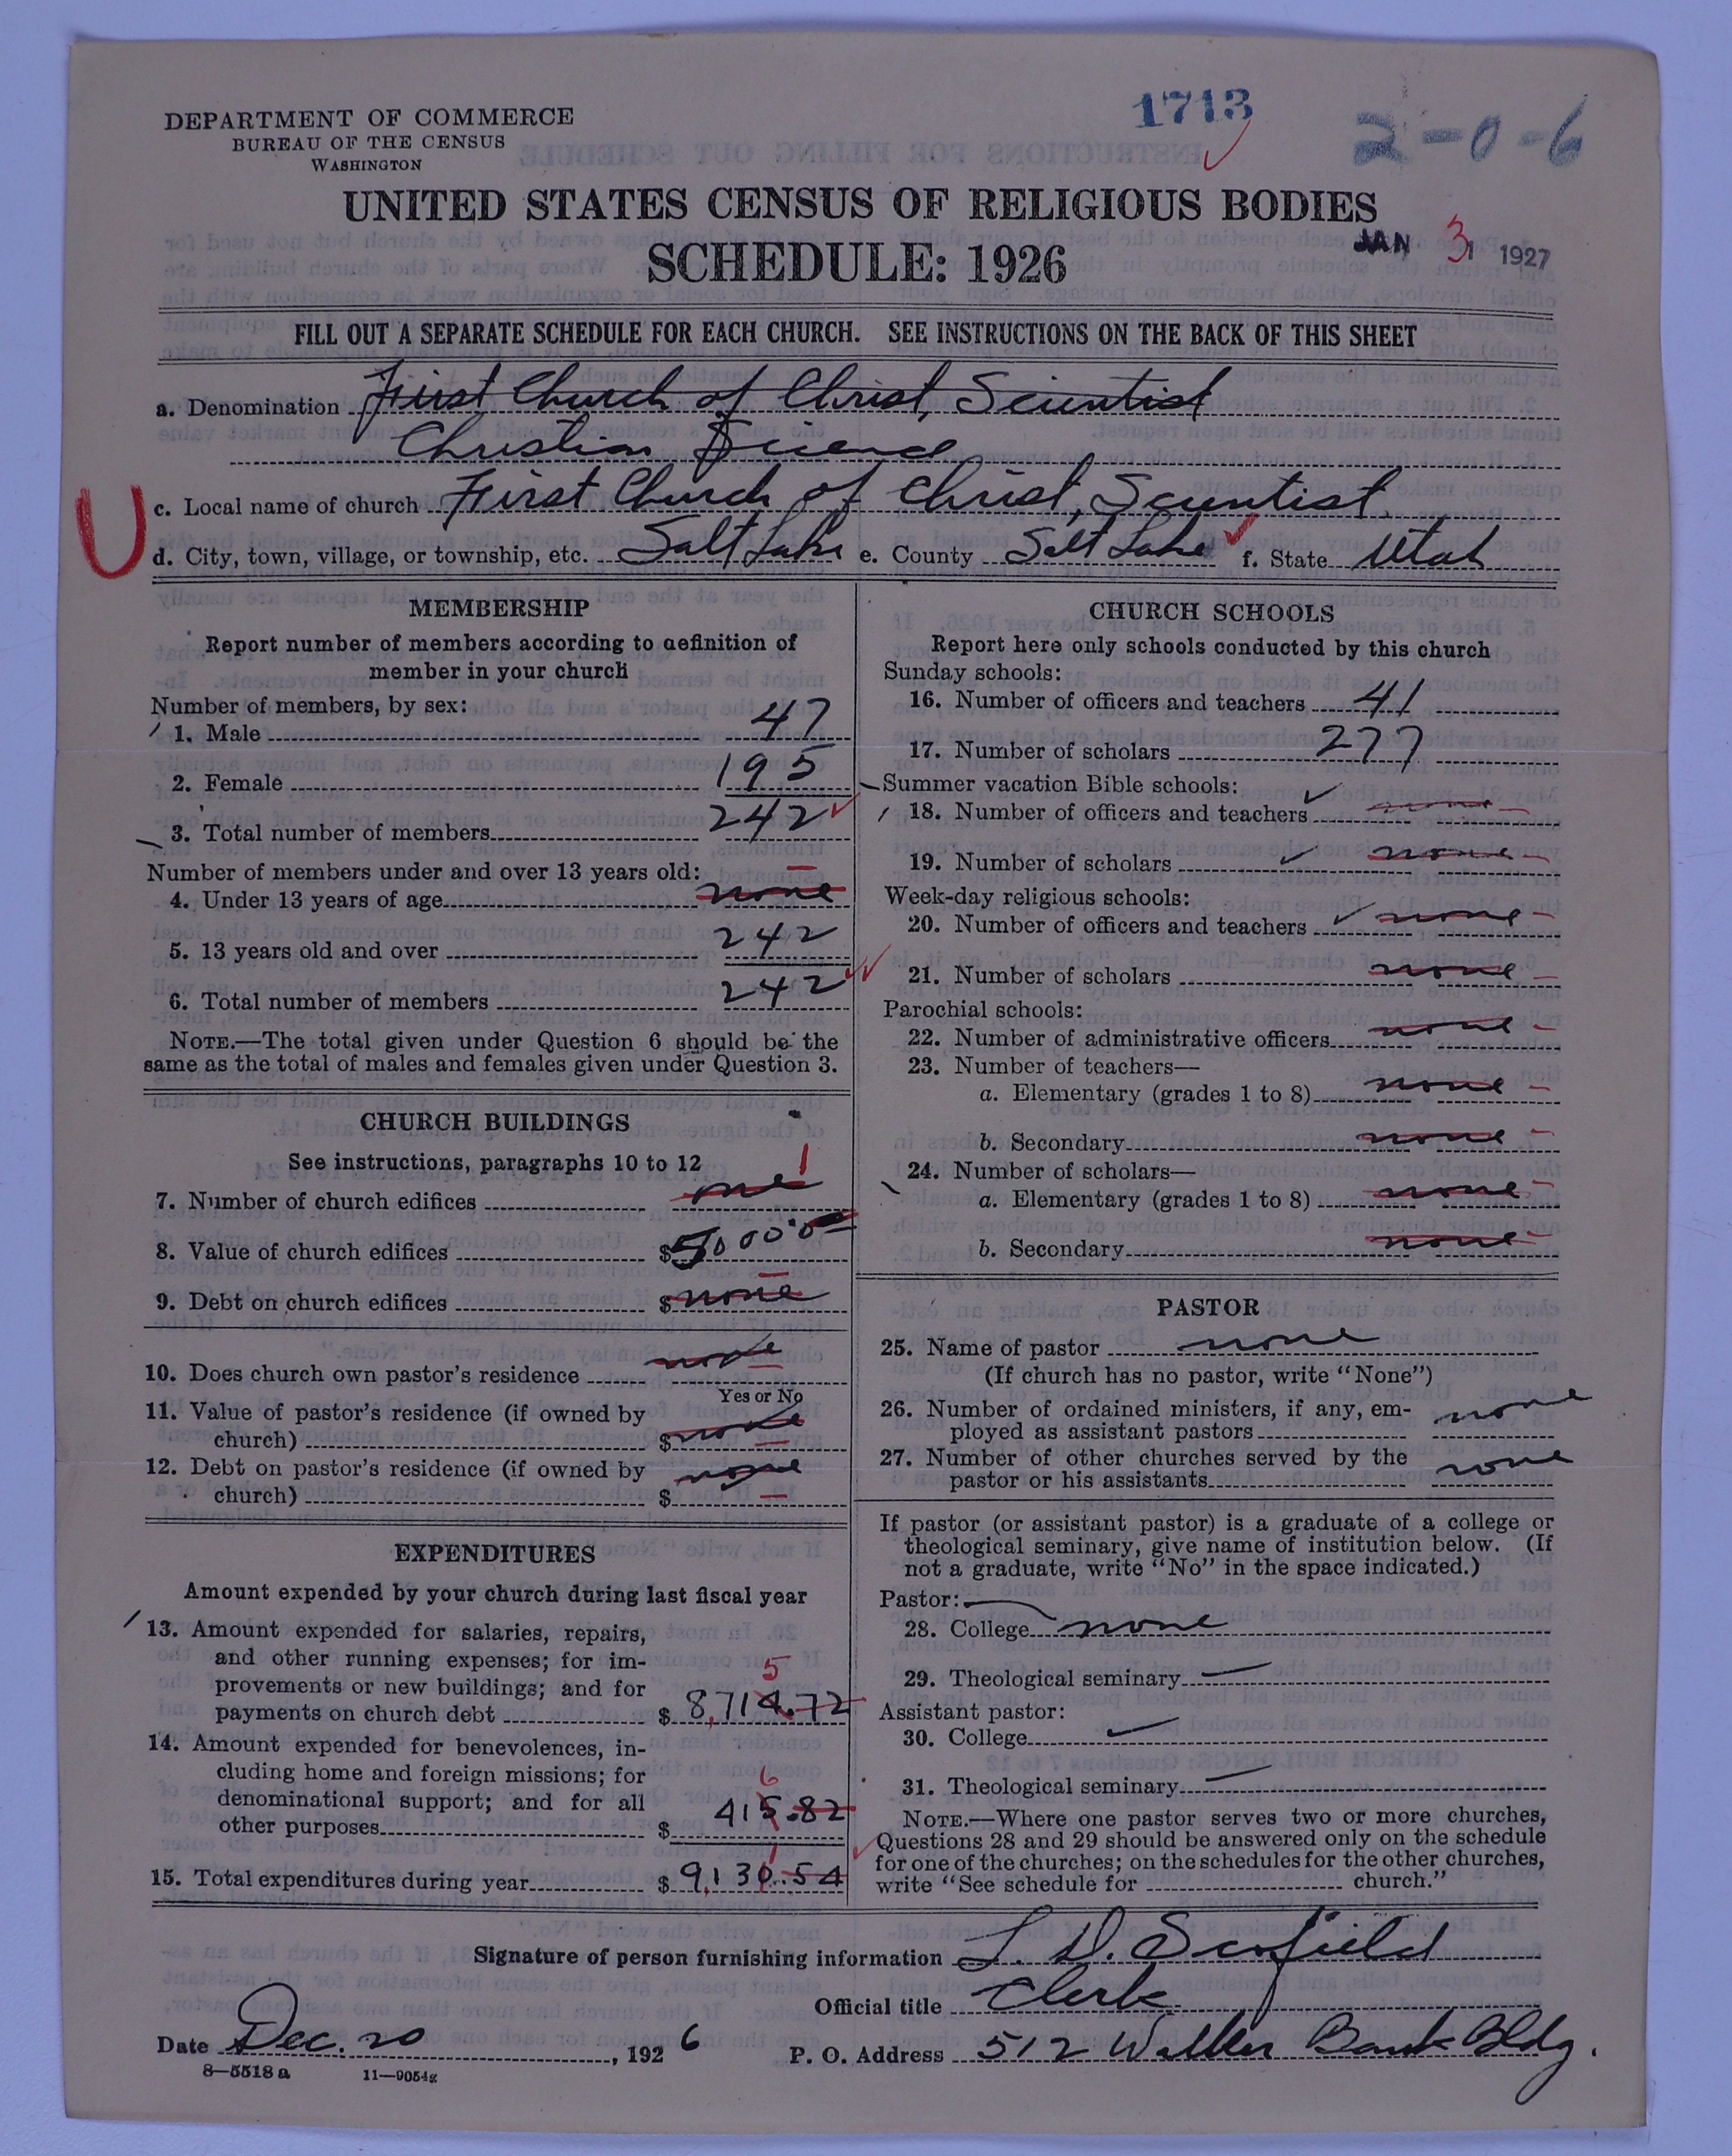 1713
2-0-6
DEPARTMENT OF COMMERCE
BUREAU OF THE CENSUS
WASHINGTON
UNITED STATES CENSUS OF RELIGIOUS BODIES
SCHEDULE: 1926
JAN 31 1927
FILL OUT A SEPARATE SCHEDULE FOR EACH CHURCH. SEE INSTRUCTIONS ON THE BACK OF THIS SHEET
a. Denomination First Church of Christ, Scientist
Christian Science
U
c. Local name of church First Church of Christ, Scientist.
d. City, town, village, or township, etc. Salt Lake e. County Salt Lake f. State Utah
MEMBERSHIP
Report number of members according to definition of
member in your church
Number of members, by sex:
1. Male 47
2. Female 195
3. Total number of members 242
Number of members under and over 13 years old:
4. Under 13 years of age none
5. 13 years old and over 242
6. Total number of members 242
NOTE.—The total given under Question 6 should be the
same as the total of males and females given under Question 3.
CHURCH BUILDINGS
See instructions, paragraphs 10 to 12
1
7. Number of church edifices one
8. Value of church edifices $ 50000
9. Debt on church edifices $ none
10. Does church own pastor's residence none
Yes or No
11. Value of pastor's residence (if owned by
church) $ none
12. Debt on pastor's residence (if owned by
church) $ none
EXPENDITURES
Amount expended by your church during last fiscal year
13. Amount expended for salaries, repairs,
and other running expenses; for im-
provements or new buildings; and for
5
payments on church debt $ 8,714.72
14. Amount expended for benevolences, in-
cluding home and foreign missions; for
6
denominational support; and for all
other purposes $ 415.82
1
15. Total expenditures during year $ 9,130.54
CHURCH SCHOOLS
Report here only schools conducted by this church
Sunday schools:
16. Number of officers and teachers 41
17. Number of scholars 277
Summer vacation Bible schools:
18. Number of officers and teachers none
19. Number of scholars none
Week-day religious schools:
20. Number of officers and teachers none
21. Number of scholars none
Parochial schools:
22. Number of administrative officers none
23. Number of teachers—
a. Elementary (grades 1 to 8) none
b. Secondary none
24. Number of scholars—
a. Elementary (grades 1 to 8) none
b. Secondary none
PASTOR
25. Name of pastor none
(If church has no pastor, write "None")
26. Number of ordained ministers, if any, em-
ployed as assistant pastors none
27. Number of other churches served by the
pastor or his assistants none
If pastor (or assistant pastor) is a graduate of a college or
theological seminary, give name of institution below. (If
not a graduate, write "No" in the space indicated.)
Pastor:
28. College none
29. Theological seminary —
Assistant pastor:
30. College —
31. Theological seminary —
NOTE.—Where one pastor serves two or more churches,
Questions 28 and 29 should be answered only on the schedule
for one of the churches; on the schedules for the other churches,
write "See schedule for church."
Signature of person furnishing information L. D. Scofield
Official title Clerk
Date Dec. 20, 1926 P. O. Address 512 Walker Bank Bldg.
8—5518 a 11—9054g